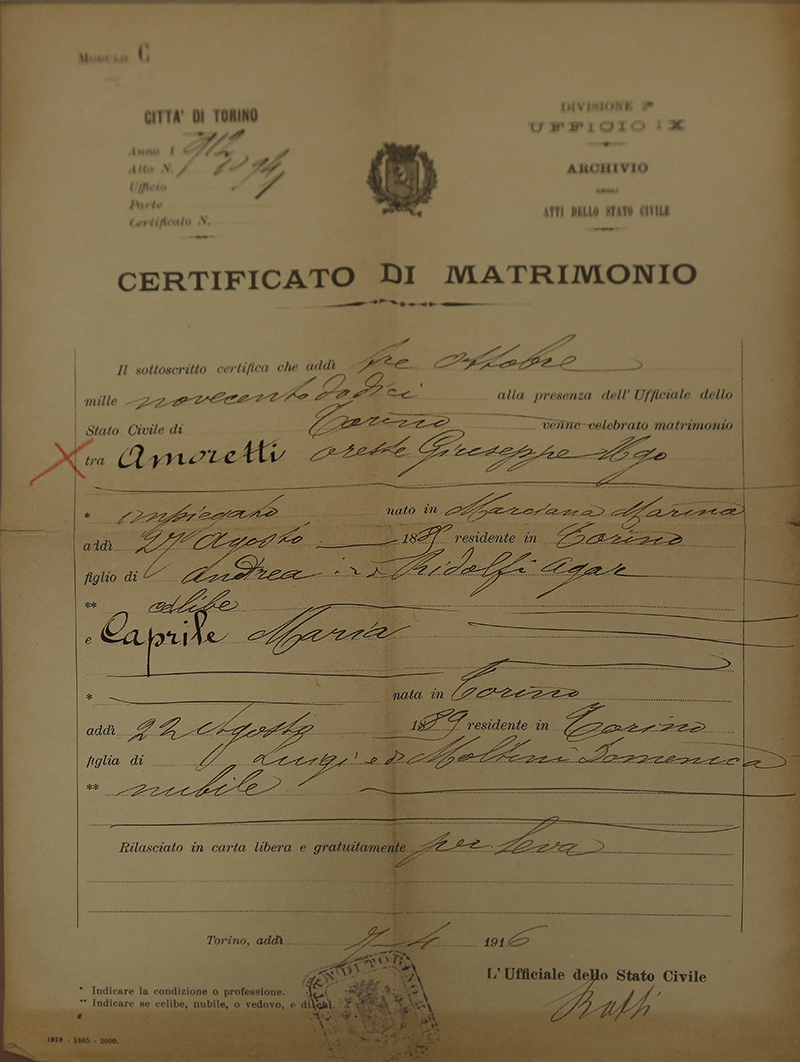 MODULO C
CITTA' DI TORINO
Anno 1912
Atto N. 1094
Ufficio
Parte
Certificato N.
DIVISIONE 
UFFICIO IX
ARCHIVIO
DEGLI
ATTI DELLO STATO CIVILE
CERTIFICATO DI MATRIMONIO
Il sottoscritto certifica che addì tre ottobre
mille novecentododici alla presenza dell'Ufficiale dello
Stato Civile di Torino venne celebrato matrimonio
tra Amoretti Oreste Giuseppe Ugo
* impiegato nato in Marciana Marina
addì 27 Agosto 188 residente in Torino
figlio di Andrea e di Ridolfi Agar
** celibe
e Caprile Maria
* nata in Torino
addì 22 Agosto 1889 residente in Torino
figlia di Luigi e di Domenica
** nubile
Rilasciato in carta libera e gratuitamente per leva
Torino, addì 7-4 1916
L'Ufficiale dello Stato Civile
* Indicare la condizione o professione.
** Indicare se celibe, nubile, o vedovo, e di chi.
CITTÀ DI TORINO